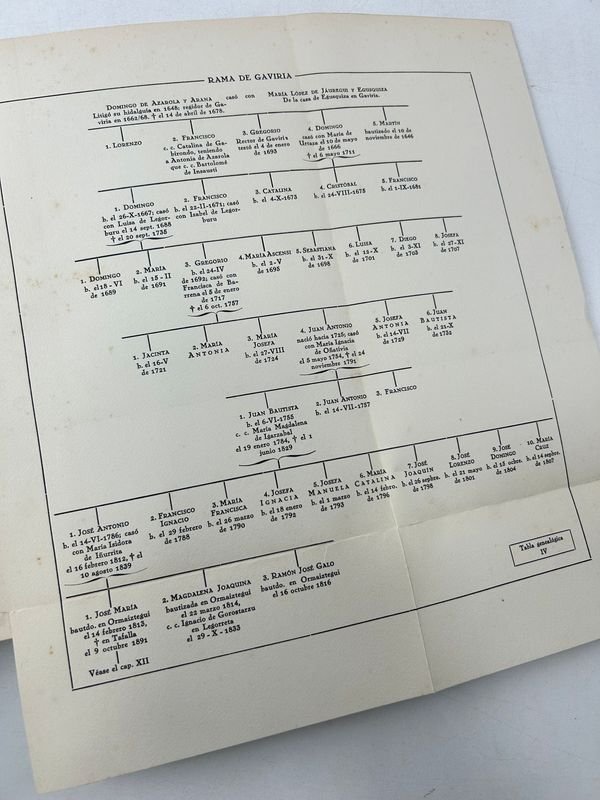 RAMA DE GAVIRIA
DOMINGO DE AZAROLA Y ARANA casó con MARÍA LÓPEZ DE JÁUREGUI Y EGUSQUIZA
Litigó su hidalguía en 1648; regidor de Ga-
viria en 1662/68. † el 14 de abril de 1678.
De la casa de Egusquiza en Gaviria.
1. LORENZO
2. FRANCISCO
c. c. Catalina de Ga-
birondo, teniendo
a Antonia de Azarola
que c. c. Bartolomé
de Insausti
3. GREGORIO
Rector de Gaviria
testó el 4 de enero
de 1693
4. DOMINGO
casó con María de
Urtaza el 10 de mayo
de 1666
† el 6 mayo 1711
5. MARTÍN
bautizado el 10 de
noviembre de 1646
1. DOMINGO
b. el 26-X-1667; casó
con Luisa de Legor-
buru el 14 sept. 1688
† el 20 sept. 1735
2. FRANCISCO
b. el 22-II-1671; casó
con Isabel de Legor-
buru
3. CATALINA
b. el 4-X-1673
4. CRISTÓBAL
b. el 24-VIII-1675
5. FRANCISCO
b. el 1-IX-1681
1. DOMINGO
b. el 18-VI
de 1689
2. MARÍA
b. el 15-II
de 1691
3. GREGORIO
b. el 24-IV
de 1692; casó con
Francisca de Ba-
rrena el 5 de enero
de 1717
† el 6 oct. 1757
4. MARÍA ASCENSI
b. el 2-V
de 1695
5. SEBASTIANA
b. el 31-X
de 1698
6. LUISA
b. el 12-X
de 1701
7. DIEGO
b. el 3-XI
de 1703
8. JOSEFA
b. el 27-XI
de 1707
1. JACINTA
b. el 16-V
de 1721
2. MARÍA
ANTONIA
3. MARÍA
JOSEFA
b. el 27-VIII
de 1724
4. JUAN ANTONIO
nació hacia 1725; casó
con María Ignacia
de Oñativia
el 5 mayo 1754, † el 24
noviembre 1791
5. JOSEFA
ANTONIA
b. el 14-VII
de 1729
6. JUAN
BAUTISTA
b. el 21-X
de 1732
1. JUAN BAUTISTA
b. el 6-VI-1755
c. c. María Magdalena
de Igarzabal
el 19 enero 1784, † el 1
junio 1829
2. JUAN ANTONIO
b. el 14-VII-1757
3. FRANCISCO
1. JOSÉ ANTONIO
b. el 14-VI-1786; casó
con María Isidora
de Iñurrita
el 16 febrero 1812, † el
10 agosto 1839
2. FRANCISCO
IGNACIO
b. el 29 febrero
de 1788
3. MARÍA
FRANCISCA
b. el 26 marzo
de 1790
4. JOSEFA
IGNACIA
b. el 18 enero
de 1792
5. JOSEFA
MANUELA
b. el 1 marzo
de 1793
6. MARÍA
CATALINA
b. el 14 febro.
de 1796
7. JOSÉ
JOAQUÍN
b. el 26 sepbre.
de 1798
8. JOSÉ
LORENZO
b. el 21 mayo
de 1801
9. JOSÉ
DOMINGO
b. el 15 ocbre.
de 1804
10. MARÍA
CRUZ
b. el 14 sepbre.
de 1807
1. JOSÉ MARÍA
bautdo. en Ormaiztegui
el 14 febrero 1813,
† en Tafalla
el 9 octubre 1891
Véase el cap. XII
2. MAGDALENA JOAQUINA
bautizada en Ormaiztegui
el 22 marzo 1814,
c. c. Ignacio de Gorostarzu
en Legorreta
el 29-X-1833
3. RAMÓN JOSÉ GALO
bautdo. en Ormaiztegui
el 16 octubre 1816
Tabla genealógica
IV